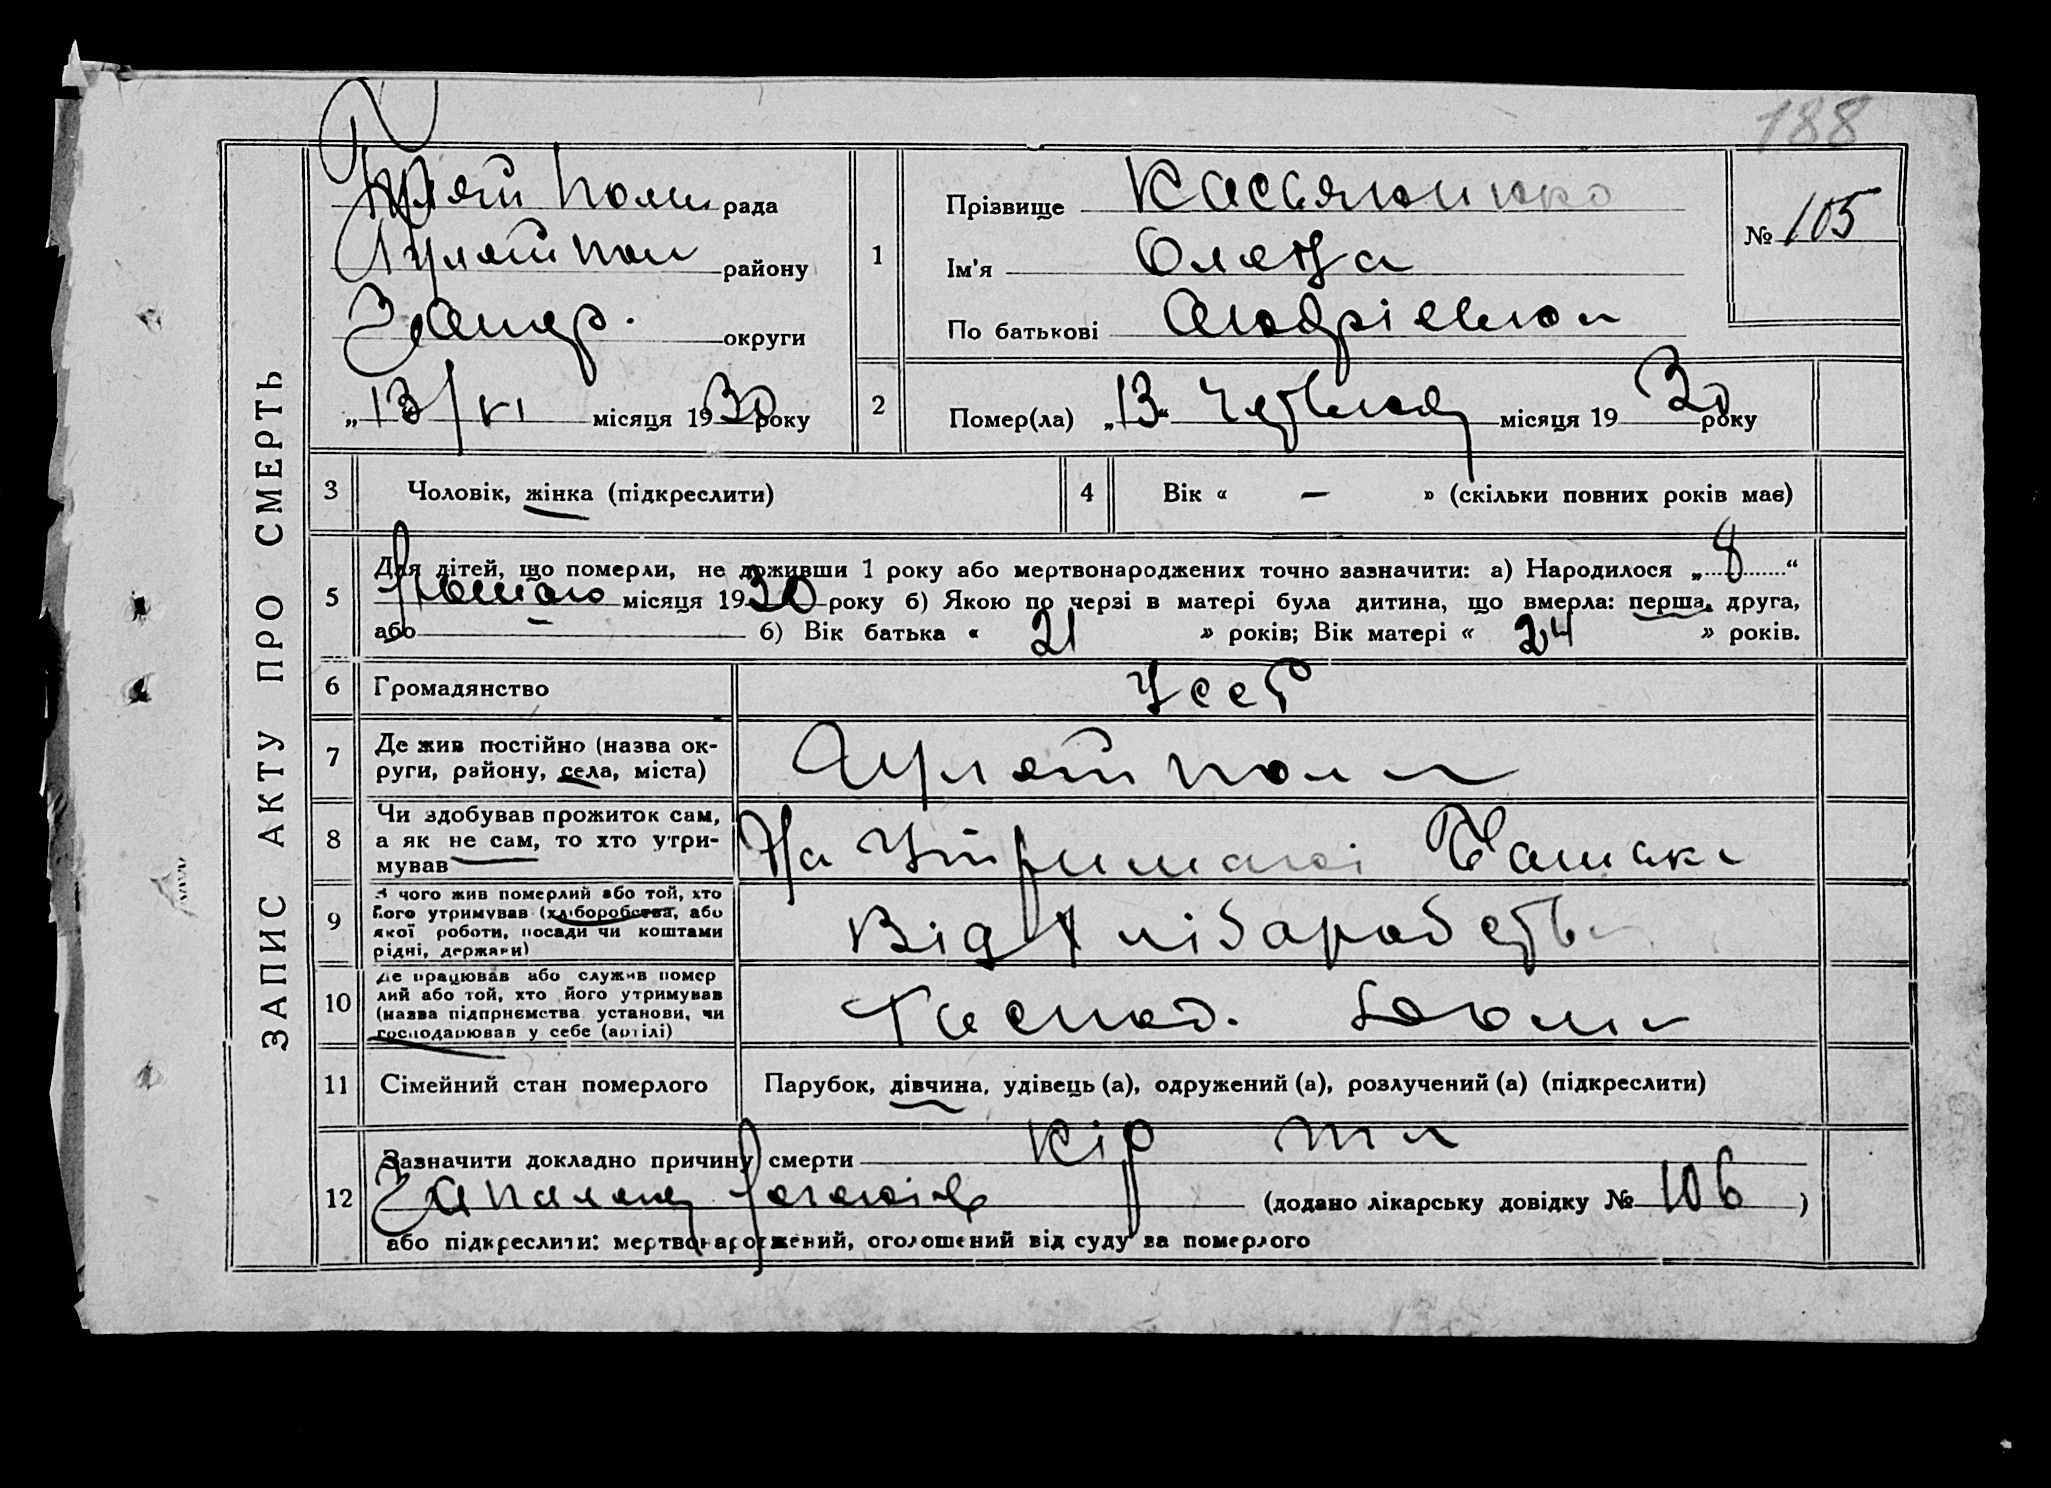 188
ЗАПИС АКТУ ПРО СМЕРТЬ
Гуляй Поль рада
Гуляй пол району
Запор. округи
„13“/VI місяця 1930 року
1
Прізвище Касьяненко
Ім'я Олена
По батькові Андрієвна
№ 105
2
Помер(ла) „13“ Червня місяця 1930 року
3 Чоловік, жінка (підкреслити)
4 Вік « — » (скільки повних років має)
5
Для дітей, що померли, не доживши 1 року або мертвонароджених точно зазначити: а) Народилося „8“
лютого місяця 1930 року б) Якою по черзі в матері була дитина, що вмерла: перша, друга,
або — б) Вік батька « 21 » років; Вік матері « 24 » років.
6 Громадянство УССР
7 Де жив постійно (назва ок-
руги, району, села, міста) Гуляй поле
8 Чи здобував прожиток сам,
а як не сам, то хто утри-
мував На Утриманні Батька
9 З чого жив померлий або той, хто
його утримував (хліборобства, або
якої роботи, посади чи коштами
рідні, держави) Від Хліборобства
10 Де працював або служив помер
лий або той, хто його утримував
(назва підпрнємства установи, чи
господарював у себе (артілі) Господ. вдома
11 Сімейний стан померлого Парубок, дівчина, удівець (а), одружений (а), розлучений (а) (підкреслити)
12
Зазначити докладно причину смерти Кір та
Запалення легенів (додано лікарську довідку № 106)
або підкреслити: мертвонароджений, оголошений від суду за померлого